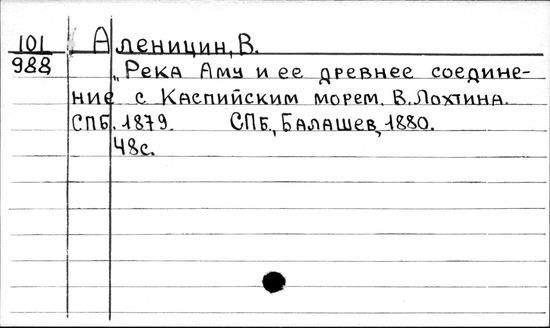 101 Аленицин, В.
988 „Река Аму и ее древнее соедине-
ние с Каспийским морем. В. Лохтина.
СПБ. 1879. СПБ., Балашев, 1880.
48с.